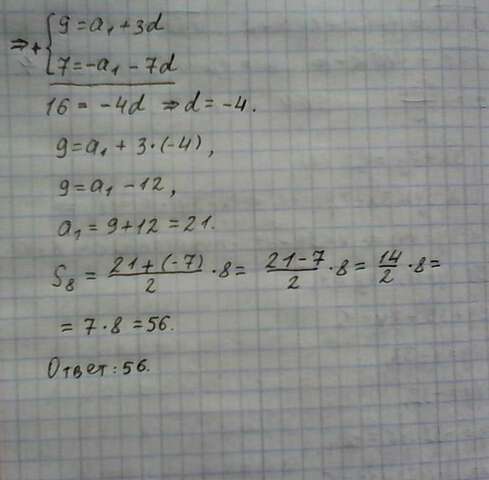 ⇒ + { 9 = a₁ + 3d
7 = -a₁ - 7d
16 = -4d ⇒ d = -4.
9 = a₁ + 3·(-4),
9 = a₁ - 12,
a₁ = 9 + 12 = 21.
S₈ = (21 + (-7))/2 · 8 = (21 - 7)/2 · 8 = 14/2 · 8 =
= 7 · 8 = 56.
Ответ: 56.